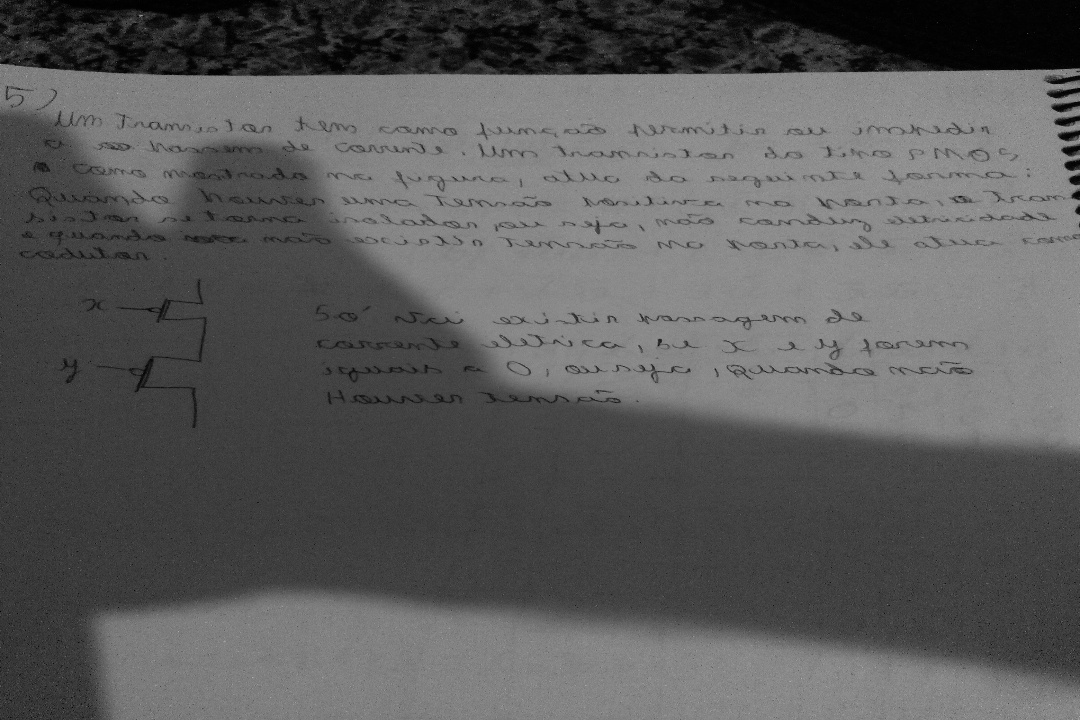 5)
Um transistor tem como função permitir ou impedir
a passem de corrente. Um transistor do tipo PMOS
como mostrado na figura, atua da seguinte forma:
Quando houver uma tensão positiva na porta, o tran
sistor se torna isolador, ou seja, não conduz eletricidade
e quando não existir tensão na porta, ele atua como
codutor.
x
y
Só vai existir passagem de
corrente eletrica, se x e y forem
iguais a 0, ou seja, quando não
Houver tensão.